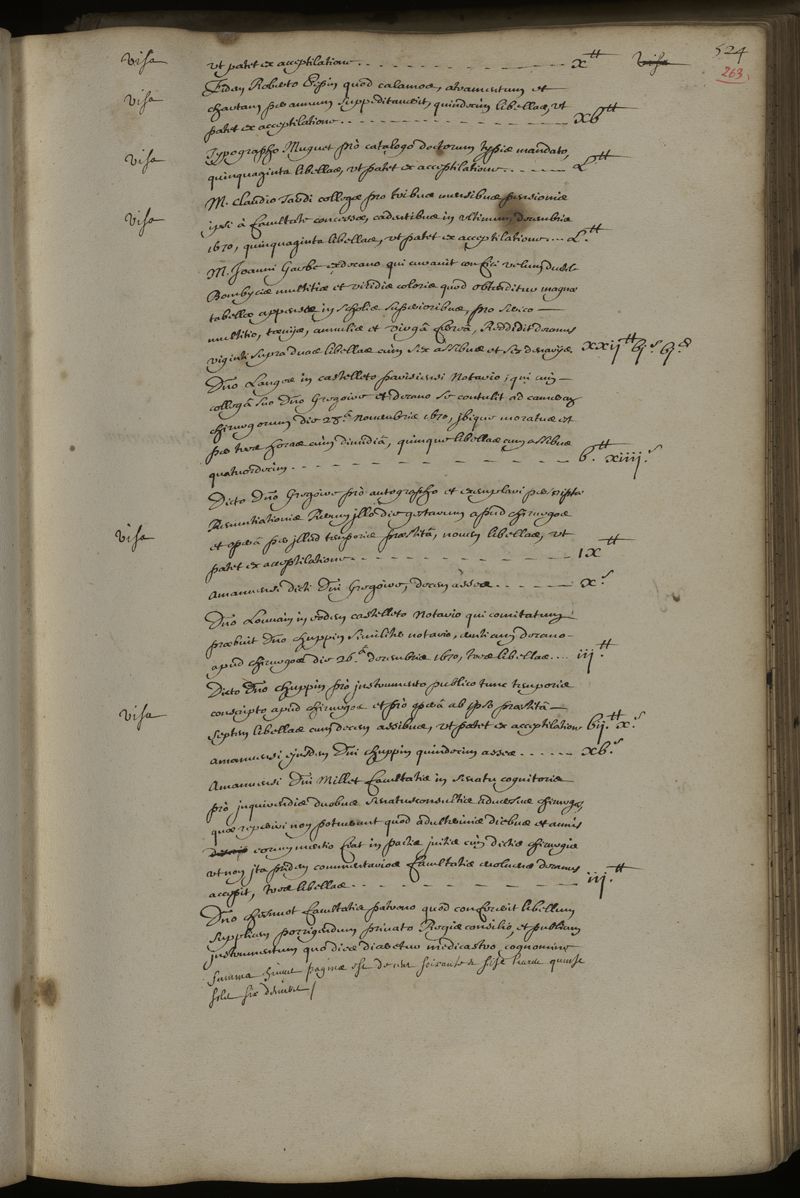 524
263.
visa
ut patet ex acceptilatione . . . . . . x tt
visa
Eidem Roberto Pepin quod calamos, atramentum et
visa
chartam per annum suppeditaverit, quindecim libellas, ut
patet ex acceptilatione . . . . . . xv tt
Typographo Muguet prò catalogo doctorum typis mandato,
visa
quinquaginta libellas, ut patet ex acceptilatione . . . . . . L tt
M. Claudio Tardi collegæ pro tribus mensibus pensionis
visa
ipsi à facultate concessæ, cadentibus in ultimum decembris
1670, quinquaginta libellas, ut patet ex acceptilatione . . . L. tt
M. Joanni Garbe exdecano qui curavit confici velum
Bombycis multitiæ et viridis coloris quod obtenditur magnæ
tabellæ appensæ in scholis superioribus, pro serico
multitio, tæniis, annulis et virgâ ferreâ, Reddidit decanus
viginti supra duas libellas cùm sex assibus et sex denariis xxij tt vj s vj d
Dño Langlois in castelleto parisiensi Notario, qui cùm
collegâ suo Dño Gregoire et decano se contulit ad cameras
chirurgorum die 28ª Novembris 1670, ibique moratus est
per tres horas cùm dimidiâ, quinque libellas cum assibus
quatuordecim . . . . . . v. tt xiiii. s
Dicto Dño Gregoire prò autographo et exemplari
Renuntiationis Rerum illo die gestarum apud chirurgos
visa
et operâ per illud temporis præstitâ, novem libellas, ut
patet ex acceptilatione . . . . . . ix tt
Amanuensi dicti Dñi Gregoire, decem asses . . . . . . x s
Dño Louvain in eodem castelleto Notario qui comitatum
præbuit Dño Chuppin similiter notario, cum decano
apud chirurgos die 26ª decembris 1670, tres libellas . . . iii. tt
Dicto Dño Chuppin prò instrumento publico tunc temporis
visa
conscripto apud chirurgos et prò operâ ab ipso præstitâ
septem libellas cum decem assibus, ut patet ex acceptilatione vij. tt x. s
amanuensi ejusdem Dñi Chuppin quindecim asses . . . . . . xv. s
Amanuensi Dñi Millet facultatis in senatu cognitoris
prò inquirendis duobus senatusconsultis adversus chirurgos,
quæ reperiri non potuerunt quod adulterinis diebus et annis
eorum mentio fiat in pactis initis cùm dictis chirurgis
ut non ita pridem commentarios facultatis evolvens decanus
accepit, tres libellas . . . . . . iij. tt
Dño Chernot facultatis patrono quod confecerit libellum
supplicem porrigendum privato Regis consilio, et publicum
instrumentum quo dies dicetur medicastro, cognomine
summa huius paginæ est de cent soixante &
solz six deniers